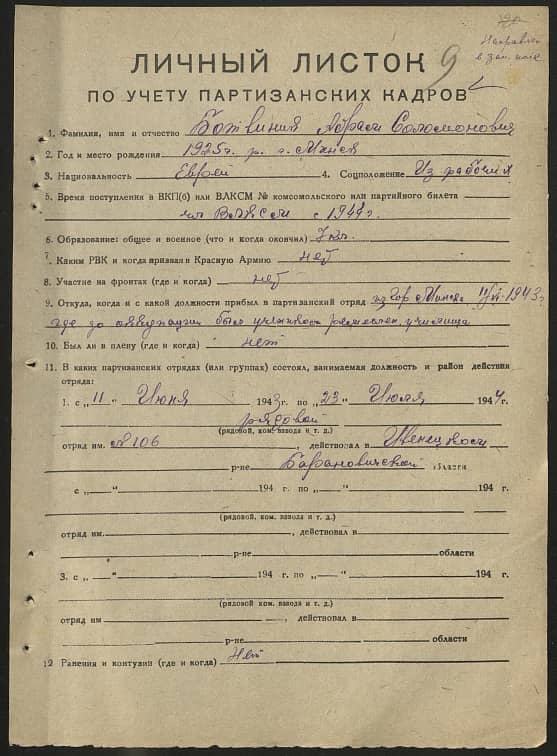 Направлен
в зап. полк
9
ЛИЧНЫЙ ЛИСТОК
ПО УЧЕТУ ПАРТИЗАНСКИХ КАДРОВ
1. Фамилия, имя и отчество Ботвиник Абрам Соломонович
2. Год и место рождения 1925г. р. г. Минск
3. Национальность Еврей 4. Соцположение Из рабочих
5. Время поступления в ВКП(б) или ВЛКСМ № комсомольского или партийного билета
чл ВЛКСМ с 1944г.
6. Образование: общее и военное (что и когда окончил) 7 кл.
7. Каким РВК и когда призван в Красную Армию нет
8. Участие на фронтах (где и когда) нет
9. Откуда, когда и с какой должности прибыл в партизанский отряд из гор. Минска 11/VI-1943г
где до оккупации был учеником ремеслен. училища
10. Был ли в плену (где и когда) нет
11. В каких партизанских отрядах (или группах) состоял, занимаемая должность и район действия
отряда:
1. с „11“ Июня 1943г. по „23“ Июля 1944г.
рядовой
(рядовой, ком. взвода и т. д.)
отряд им. №106, действовал в Ивенецком
р-не Барановичской области
с „—“ 194 г. по „—“ 194 г
(рядовой, ком. взвода и т. д.)
отряд им., действовал в
р-не области
3. с „—“ 194 г. по „—“ 194 г.
(рядовой, ком. взвода и т. д.)
отряд им, действовал в
р-не области
12 Ранения и контузии (где и когда) Нет